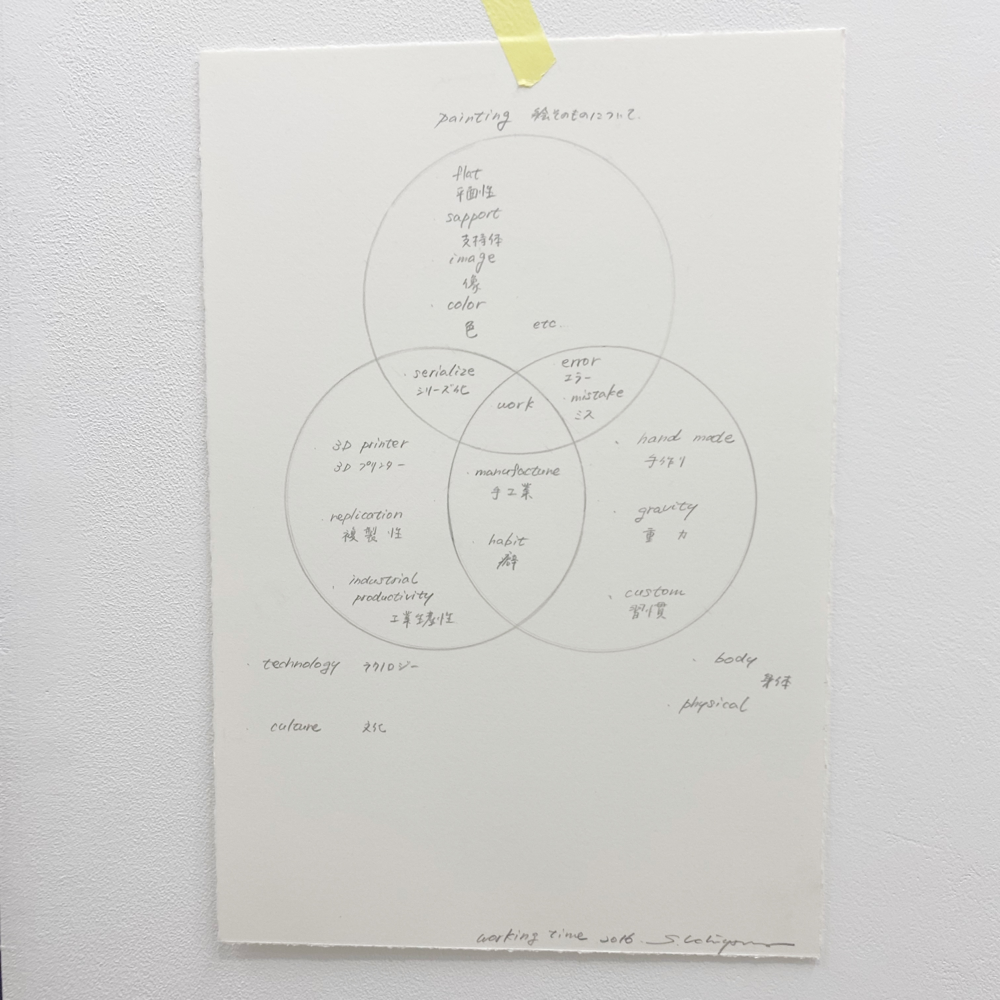 painting 絵そのものについて.
flat
平面性
support
支持体
image
像
・color
色 etc..
・serialize
シリーズ化
error
エラー
・mistake
ミス
work
・3D printer
3D プリンター
・replication
複製性
・industrial
productivity
工業生産性
・manufacture
手工業
・habit
癖
・hand made
手作り
・gravity
重力
・custom
習慣
・technology テクノロジー
culture 文化
・body
身体
・physical
working time 2016.